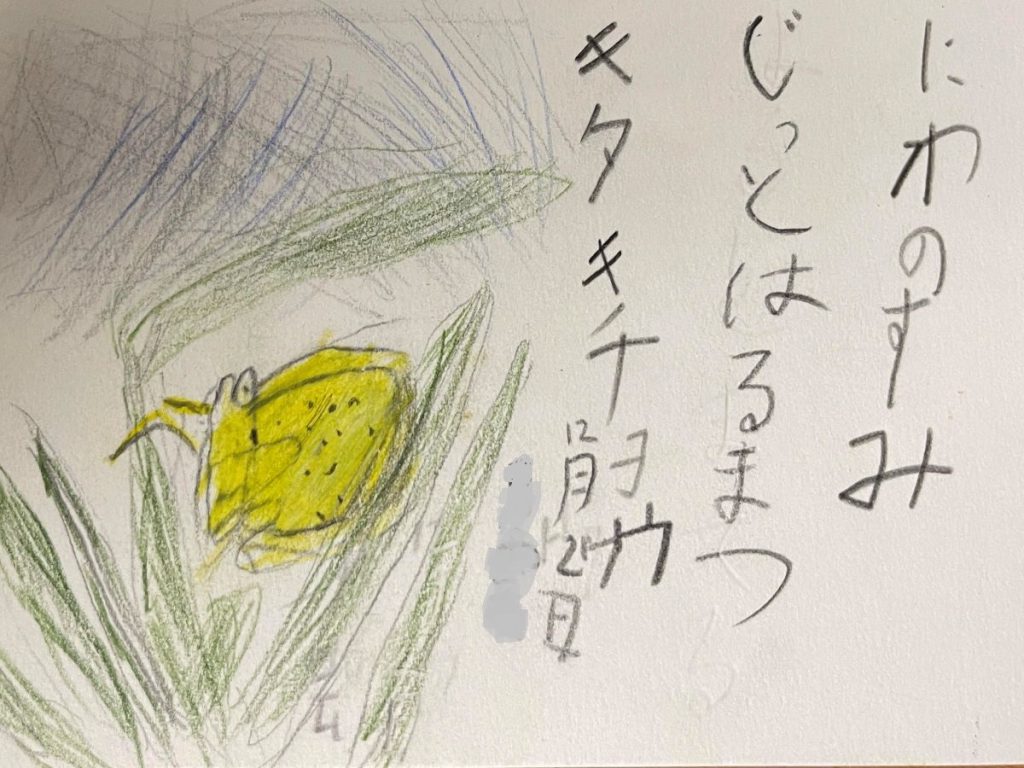 にわのすみ
じっとはるまつ
キタキチョウ
12月 日